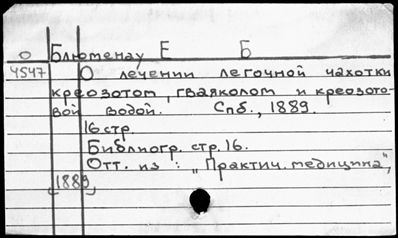 О Блюменау Е Б
4547 О лечении легочной чахотки
креозотом, гваяколом и креозото-
вой водой. Спб., 1889.
16 стр.
Библиогр. стр. 16.
Отт. из: „Практич. медицина",
[1889]